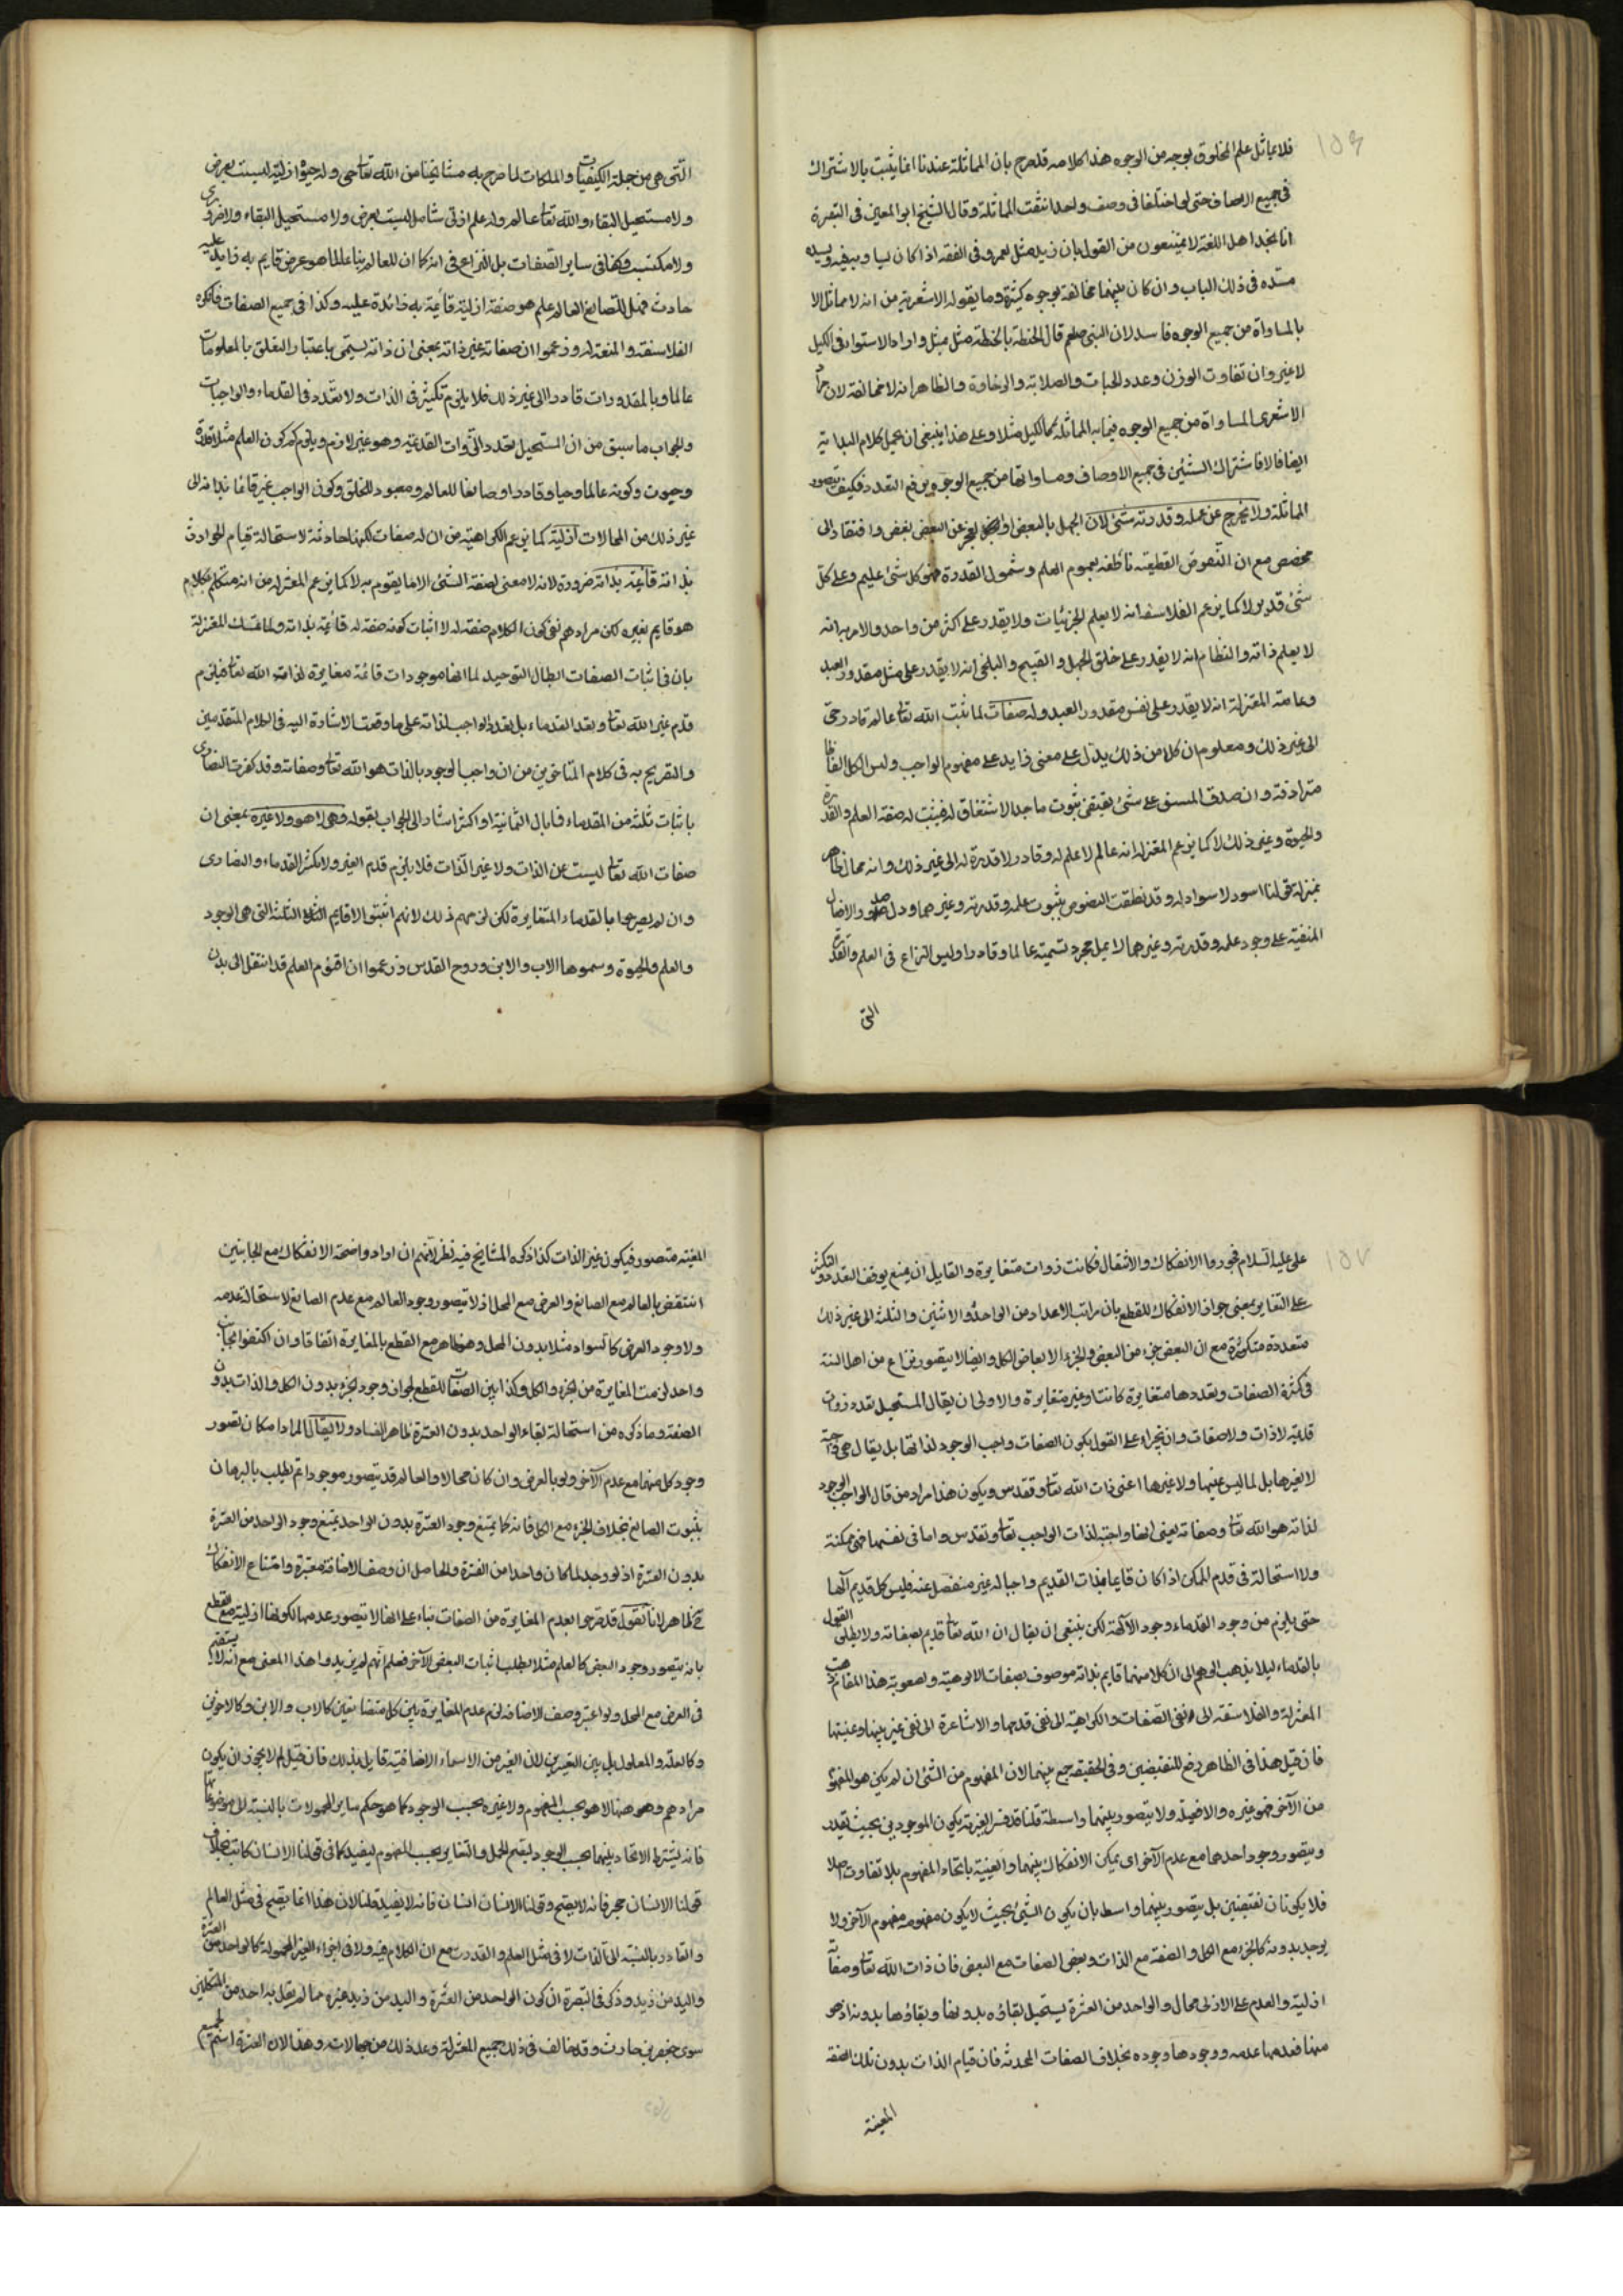 ١٥٦
فلا يماثل علم المخلوق بوجه من الوجوه هذا كلامه قد صرح بان المماثلة عندنا انما يثبت بالاشتراك
فى جميع الاوصاف حتى لو اختلفا فى وصف واحد انتفت المماثلة وقال الشيخ ابو المعين فى التبصرة
انا نجد اهل اللغة لا يمتنعون من القول بان زيد مثل لعمرو فى الفقه اذا كان يساويه فيه ويسد
مسده فى ذلك الباب وان كان بينهما مخالفة بوجوه كثيرة وما يقوله الاشعرية من انه لا مماثل الا
بالمساواة من جميع الوجوه فاسد لان النبى صلعم قال الحنطة بالحنطة مثل بمثل واراد الاستواء فى الكيل
لا غير وان تفاوت الوزن وعدد الحبات والصلابة والرخاوة والظاهر انه لا مخالفة لان مراد
الاشعرى المساواة من جميع الوجوه فيما به المماثلة كالكيل مثلا وعلى هذا ينبغى ان يحمل كلام البداية
ايضا والا فاشتراك الشيئين فى جميع الاوصاف ومساواتهما من جميع الوجوه يرفع التعدد فكيف يتصور
المماثلة ولا يخرج عن علمه وقدرته شئ لان الجهل بالبعض او العجز عن البعض نقص وافتقار الى
مخصص مع ان النصوص القطعية ناطقة بعموم العلم وشمول القدرة فهو كل شئ عليم وعلى كل
شئ قدير لا كما يزعم الفلاسفة انه لا يعلم الجزئيات ولا يقدر على اكثر من واحد والدهرية انه
لا يعلم ذاته والنظام انه لا يقدر على خلق الجهل والقبيح والبلخى انه لا يقدر على مثل مقدور العبد
وعامة المعتزلة انه لا يقدر على نفس مقدور العبد وله صفات لما ثبت الله تعا عالم قادر حى
الى غير ذلك ومعلوم ان كلا من ذلك يدل على معنى زايد على مفهوم الواجب وليس الكل الفاظا
مترادفة وان صدق المشتق على شئ يقتضى ثبوت ماخذ الاشتقاق له فيثبت له صفة العلم والقدرة
والحيوة وغير ذلك لا كما يزعم المعتزلة انه عالم لا علم له وقادر لا قدرة له الى غير ذلك وانه محال ظاهر
بمنزلة قولنا اسود لا سواد له وقد نطقت النصوص بثبوت علمه وقدرته وغيرهما ودل صدور الافعال
المتقنة على وجود علمه وقدرته وغيرهما لا على مجرد تسميته عالما وقادرا وليس النزاع فى العلم والقدرة
التى
التى هى من جملة الكيفيات والملكات لما صرح به مشايخنا من الله تعا حى وله حيوة ازلية ليست بعرض
ولا مستحيل البقاء والله تعا عالم وله علم ازلى شامل ليست بعرض ولا مستحيل البقاء ولا ضرورى
ولا مكتسب وكذا فى ساير الصفات بل النزاع فى انه كما ان للعالم منا علما هو عرض قايم به زايد عليه
حادث فهل للصانع العالم علم هو صفة ازلية قائمة به زائدة عليه وكذا فى جميع الصفات فانكره
الفلاسفة والمعتزلة وزعموا ان صفاته عين ذاته بمعنى ان ذاته يسمى باعتبار التعلق بالمعلومات
عالما وبالمقدورات قادرا الى غير ذلك فلا يلزم تكثر فى الذات ولا تعدد فى القدماء والواجبات
والجواب ما سبق من ان المستحيل تعدد الذوات القديمة وهو غير لازم ويلزمكم كون العلم مثلا قدرة
وحيوة وكونه عالما وحيا وقادرا وصانعا للعالم ومعبود للخلق وكون الواجب غير قائم بذاته الى
غير ذلك من المحالات ازلية كما يزعم الكراهية من ان له صفات لكنها حادثة لاستحالة قيام الحوادث
بذاته قائمة بذاته ضرورة لانه لا معنى لصفة الشئ الا ما يقوم به لا كما يزعم المعتزله من انه متكلم بكلام
هو قايم بغيره لكن مرادهم نفى كون الكلام صفة له لا اثبات كونه صفة له قائمة بذاته ولما تمسك المعتزلة
بان فى اثبات الصفات ابطال التوحيد لما انها موجودات قائمة مغايرة لذات الله تعا فيلزم
قدم غير الله تعا وتعدد القدماء بل تعدد الواجب لذاته على ما وقعت الاشارة اليه فى كلام المتقدمين
والتصريح به فى كلام المتاخرين من ان واجب الوجود بالذات هو الله تعا وصفاته وقد كفرت النصارى
باثبات ثلثة من القدماء فما بال الثمانية او اكثر اشار الى الجواب بقوله وهى لا هو ولا غيره بمعنى ان
صفات الله تعا ليست عين الذات ولا غير الذات فلا يلزم قدم الغير ولا تكثر القدماء والنصارى
وان لم يصرحوا بالقدماء المتغايرة لكن لزمهم ذلك لانهم اثبتوا الاقانيم الثلثة التى هى الوجود
والعلم والحيوة وسموها الاب والابن وروح القدس وزعموا ان اقنوم العلم قد انتقل الى بدن
١٥٧
على عليه السلام فجوزوا الانفكاك والانتقال فكانت ذوات متغايرة ولقايل ان يمنع توقف التعدد والتكثر
على التغاير بمعنى جواز الانفكاك للقطع بان مراتب الاعداد من الواحد والاثنين والثلثة الى غير ذلك
متعددة متكثرة مع ان البعض جزء من البعض والجزء لا يغاير الكل وايضا لا يتصور نزاع من اهل السنة
فى كثرة الصفات وتعددها متغايرة كانت او غير متغايرة والاولى ان يقال المستحيل تعدد ذوات
قديمة لا ذات وصفات وان يجزاء على القول بكون الصفات واجب الوجود لذاتها بل يقال هى واجبة
لا لغيرها بل لما ليس عينها ولا غيرها اعنى ذات الله تعا وتقدس ويكون هذا مراد من قال الواجب الوجود
لذاته هو الله تعا وصفاته يعنى انها واجبة لذات الواجب تعا وتقدس واما فى نفسها فهى ممكنة
ولا استحالة فى قدم الممكن اذا كان قايما بذات القديم واجبا له غير منفصل عنه فليس كل قديم آلها
حتى يلزم من وجود القدماء وجود الآلهة لكن ينبغى ان يقال ان الله تعا قديم بصفاته ولا يطلق القول
بالقدماء ليلا يذهب الوهم الى ان كلا منهما قايم بذاته موصوف بصفات الالوهية ولصعوبة هذا المقام ذهبت
المعتزلة والفلاسفة الى نفى الصفات والكراهية الى نفى قدمها والاشاعرة الى نفى غيريتها وعينيتها
فان قيل هذا فى الظاهر رفع للنقيضين وفى الحقيقة جمع بينهما لان المفهوم من الشئ ان لم يكن هو المفهوم
من الآخر فهو غيره والا فعينه ولا يتصور بينهما واسطة قلنا قد فسر الغيرية بكون الموجودين بحيث يقدر
ويتصور وجود احدهما مع عدم الآخر اى يمكن الانفكاك بينهما والعينية باتحاد المفهوم بلا تفاوت اصلا
فلا يكونان نقيضين بل يتصور بينهما واسط بان يكون الشئ بحيث لا يكون مفهومه مفهوم الآخر ولا
يوجد بدونه كالجزء مع الكل والصفة مع الذات وبعض الصفات مع البعض فان ذات الله تعا وصفاته
ازلية والعدم على الازلى محال والواحد من العشرة يستحيل بقاؤه بدونها وبقاؤها بدونه اذ هو
منها فعدمها عدمه ووجودها وجوده بخلاف الصفات المحدثة فان قيام الذات بدون تلك الصفة
المعينة
المعينة متصور فيكون غير الذات كذا ذكره المشايخ فيه نظر لانهم ان ارادوا صحة الانفكاك مع الجانبين
انتقض بالعالم مع الصانع والعرض مع المحل اذ لا يتصور وجود العالم مع عدم الصانع لاستحالة عدمه
ولا وجود العرض كالسواد مثلا بدون المحل وهو ظاهر مع القطع بالمغايرة اتفاقا وان اكتفوا بجانب
واحد لزمت المغايرة من الجزء والكل وكذا بين الصفات للقطع لجواز وجود الجزء بدون الكل والذات بدون
الصفة وما ذكره من استحالة بقاء الواحد بدون العشرة ظاهر الفساد ولا يقال المراد امكان تصور
وجود كل منهما مع عدم الآخر ولو بالعرض وان كان محالا والعالم قد يتصور موجودا ثم يطلب بالبرهان
بثبوت الصانع بخلاف الجزء مع الكل فانه كما يمتنع وجود العشرة بدون الواحد يمتنع وجود الواحد من العشرة
بدون العشرة اذ لو وجد لما كان واحدا من العشرة والحاصل ان وصف الاضافة معتبرة وامتناع الانفكاك
ح ظاهر لانا نقول قد صرحوا بعدم المغايرة من الصفات بناء على انها لا يتصور عدمها لكونها ازلية مع القطع
بانه يتصور وجود البعض كالعلم مثلا يطلب اثبات البعض الآخر فعلم انهم لم يريدوا هذا المعنى مع انه لا يستقيم
فى العرض مع المحل ولو اعتبر وصف الاضافة لزم عدم المغايرة بين كل متضايفين كالاب والابن وكالاخوين
وكالعلة والمعلول بل بين الغيرين لان الغير من الاسماء الاضافية قايل بذلك فان قيل لم لا يجوز ان يكون
مرادهم وهو هنا لا هو بحسب المفهوم ولا غيره بحسب الوجود كما هو حكم ساير المحمولات بالنسبة الى موضوعاتها
فانه يشترط الاتحاد بينهما بحسب الوجود ليصح الحمل والتغاير بحسب المفهوم ليفيد كما فى قولنا الانسان كاتب بخلاف
قولنا الانسان حجر فانه لا يصح وقولنا الانسان انسان فانه لا يفيد قلنا لان هذا انما يصح فى مثل العالم
والقادر بالنسبة الى الذات لا فى مثل العلم والقدرت مع ان الكلام فيه ولا فى اجزاء الغير المحمولة كالواحد من العشرة
واليد من زيد وذكر فى التبصرة ان كون الواحد من العشرة واليد من زيد غيره مما لم يقل به احد من المتكلمين
سوى جعفر بن حارث وقد خالف فى ذلك جميع المعتزلة وعد ذلك من جهالاته وهذا لان العشرة اسم لجميع